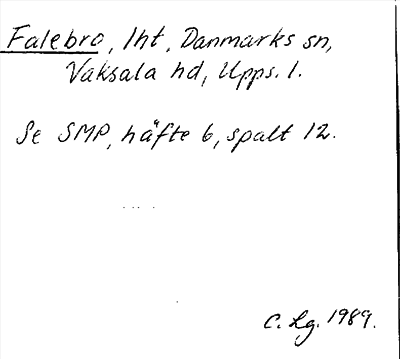 Falebro, lht, Danmarks sn,
Vaksala hd, Upps. l.
Se SMP, häfte 6, spalt 12.
C. Lg. 1989.